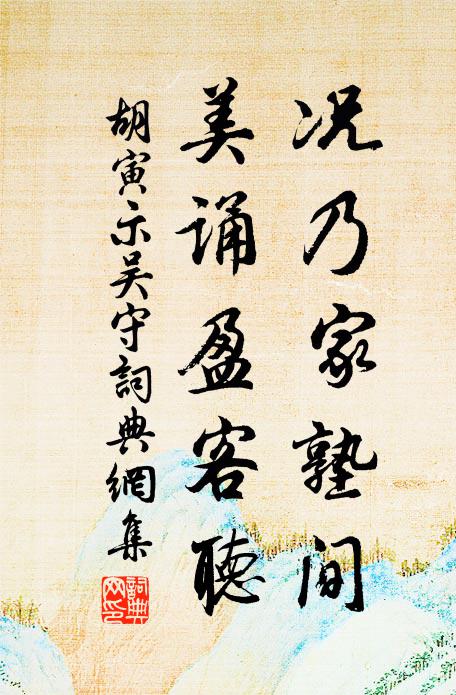 况乃家塾间
美诵盈客聽
胡寅示吴守詞典網集
詞典